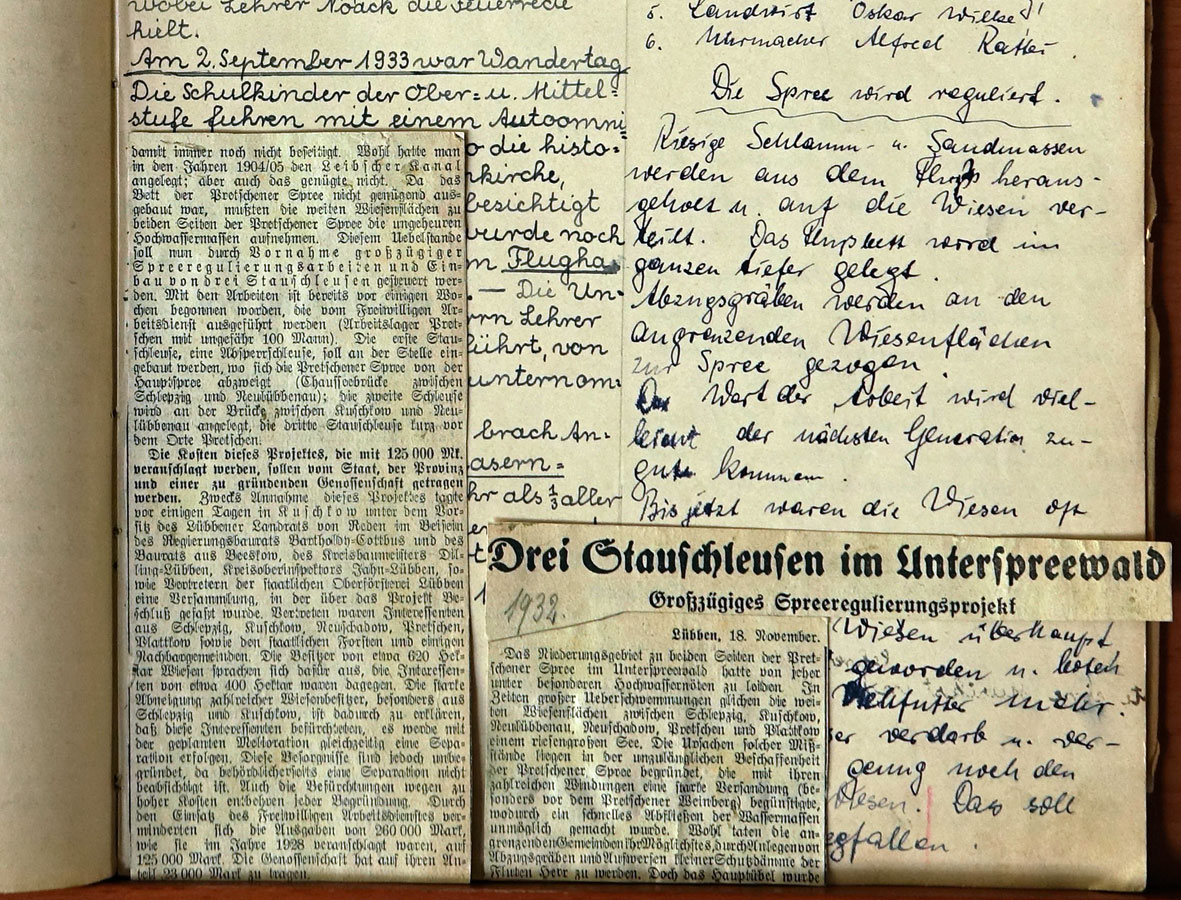 wobei Lehrer Noack die Feuerrede
hielt.
Am 2. September 1933 war Wandertag
Die Schulkinder der Ober= u. Mittel=
stufe fuhren mit einem Autoomni=
o die histo=
nkirche,
besichtigt
wurde noch
m Flugha
. — Die Un=
rrn Lehrer
führt, von
unternom=
brach An=
asern=
hr als ⅓ aller
5. Landwirt Oskar Wilke
6. Uhrmacher Alfred
Die Spree wird reguliert.
Riesige Schlamm- u. Sandmassen
werden aus dem Fluß heraus-
geholt u. auf die Wiesen ver-
teilt. Das Flußbett wird im
ganzen tiefer gelegt.
Abzugsgräben werden an den
angrenzenden Wiesenflächen
zur Spree gezogen.
Der Wert der Arbeit wird viel-
leicht der nächsten Generation zu-
gute kommen.
Bis jetzt waren die Wiesen oft
Wiesen überhaupt
geworden u. boten
Viehfutter mehr.
er verdarb u. ver-
genug noch den
Wiesen. Das soll
egfallen.
damit immer noch nicht beseitigt. Wohl hatte man
in den Jahren 1904/05 den Leibscher Kanal
angelegt; aber auch das genügte nicht. Da das
Bett der Pretschener Spree nicht genügend aus-
gebaut war, mußten die weiten Wiesenflächen zu
beiden Seiten der Pretschener Spree die ungeheuren
Hochwassermassen aufnehmen. Diesem Uebelstande
soll nun durch Vornahme großzügiger
Spreeregulierungsarbeiten und Ein-
bau von drei Stauschleusen gesteuert wer-
den. Mit den Arbeiten ist bereits vor einigen Wo-
chen begonnen worden, die vom Freiwilligen Ar-
beitsdienst ausgeführt werden (Arbeitslager Pret-
schen mit ungefähr 100 Mann). Die erste Stau-
schleuse, eine Absperrschleuse, soll an der Stelle ein-
gebaut werden, wo sich die Pretschener Spree von der
Hauptspree abzweigt (Chausseebrücke zwischen
Schlepzig und Neulübbenau); die zweite Schleuse
wird an der Brücke zwischen Kuschkow und Neu-
lübbenau angelegt, die dritte Stauschleuse kurz vor
dem Orte Pretschen.
Die Kosten dieses Projektes, die mit 125 000 Mk.
veranschlagt werden, sollen vom Staat, der Provinz
und einer zu gründenden Genossenschaft getragen
werden. Zwecks Annahme dieses Projektes tagte
vor einigen Tagen in Kuschkow unter dem Vor-
sitz des Lübbener Landrats von Reden im Beisein
des Regierungsbaurats Bartholdy-Cottbus und des
Baurats aus Beeskow, des Kreisbaumeisters Dil-
ling-Lübben, Kreisoberinspektors Jahn-Lübben, so-
wie Vertretern der staatlichen Oberförsterei Lübben
eine Versammlung, in der über das Projekt Be-
schluß gefaßt wurde. Vertreten waren Interessenten
aus Schlepzig, Kuschkow, Neuschadow, Pretschen,
Plattkow sowie den staatlichen Forsten und einigen
Nachbargemeinden. Die Besitzer von etwa 620 Hek-
tar Wiesen sprachen sich dafür aus, die Interessen-
ten von etwa 400 Hektar waren dagegen. Die starke
Abneigung zahlreicher Wiesenbesitzer, besonders aus
Schlepzig und Kuschkow, ist dadurch zu erklären,
daß diese Interessenten befürchteten, es werde mit
der geplanten Melioration gleichzeitig eine Sepa-
ration erfolgen. Diese Besorgnisse sind jedoch unbe-
gründet, da behördlicherseits eine Separation nicht
beabsichtigt ist. Auch die Befürchtungen wegen zu
hoher Kosten entbehren jeder Begründung. Durch
den Einsatz des Freiwilligen Arbeitsdienstes ver-
minderten sich die Ausgaben von 260 000 Mark,
wie sie im Jahre 1928 veranschlagt waren, auf
125 000 Mark. Die Genossenschaft hat auf ihren An-
teil 23 000 Mark zu tragen.
Drei Stauschleusen im Unterspreewald
Großzügiges Spreeregulierungsprojekt
1932.
Lübben, 18. November.
Das Niederungsgebiet zu beiden Seiten der Pret-
schener Spree im Unterspreewald hatte von jeher
unter besonderen Hochwassernöten zu leiden. In
Zeiten großer Ueberschwemmungen glichen die wei-
ten Wiesenflächen zwischen Schlepzig, Kuschkow,
Neulübbenau, Neuschadow, Pretschen und Plattkow
einem riesengroßen See. Die Ursachen solcher Miß-
stände liegen in der unzulänglichen Beschaffenheit
der Pretschener Spree begründet, die mit ihren
zahlreichen Windungen eine starke Versandung (be-
sonders vor dem Pretschener Weinberg) begünstigte,
wodurch ein schnelles Abfließen der Wassermassen
unmöglich gemacht wurde. Wohl taten die an-
grenzenden Gemeinden ihr Möglichstes, durch Anlegen von
Abzugsgräben und Aufwerfen kleiner Schutzdämme der
Fluten Herr zu werden. Doch das Hauptübel wurde